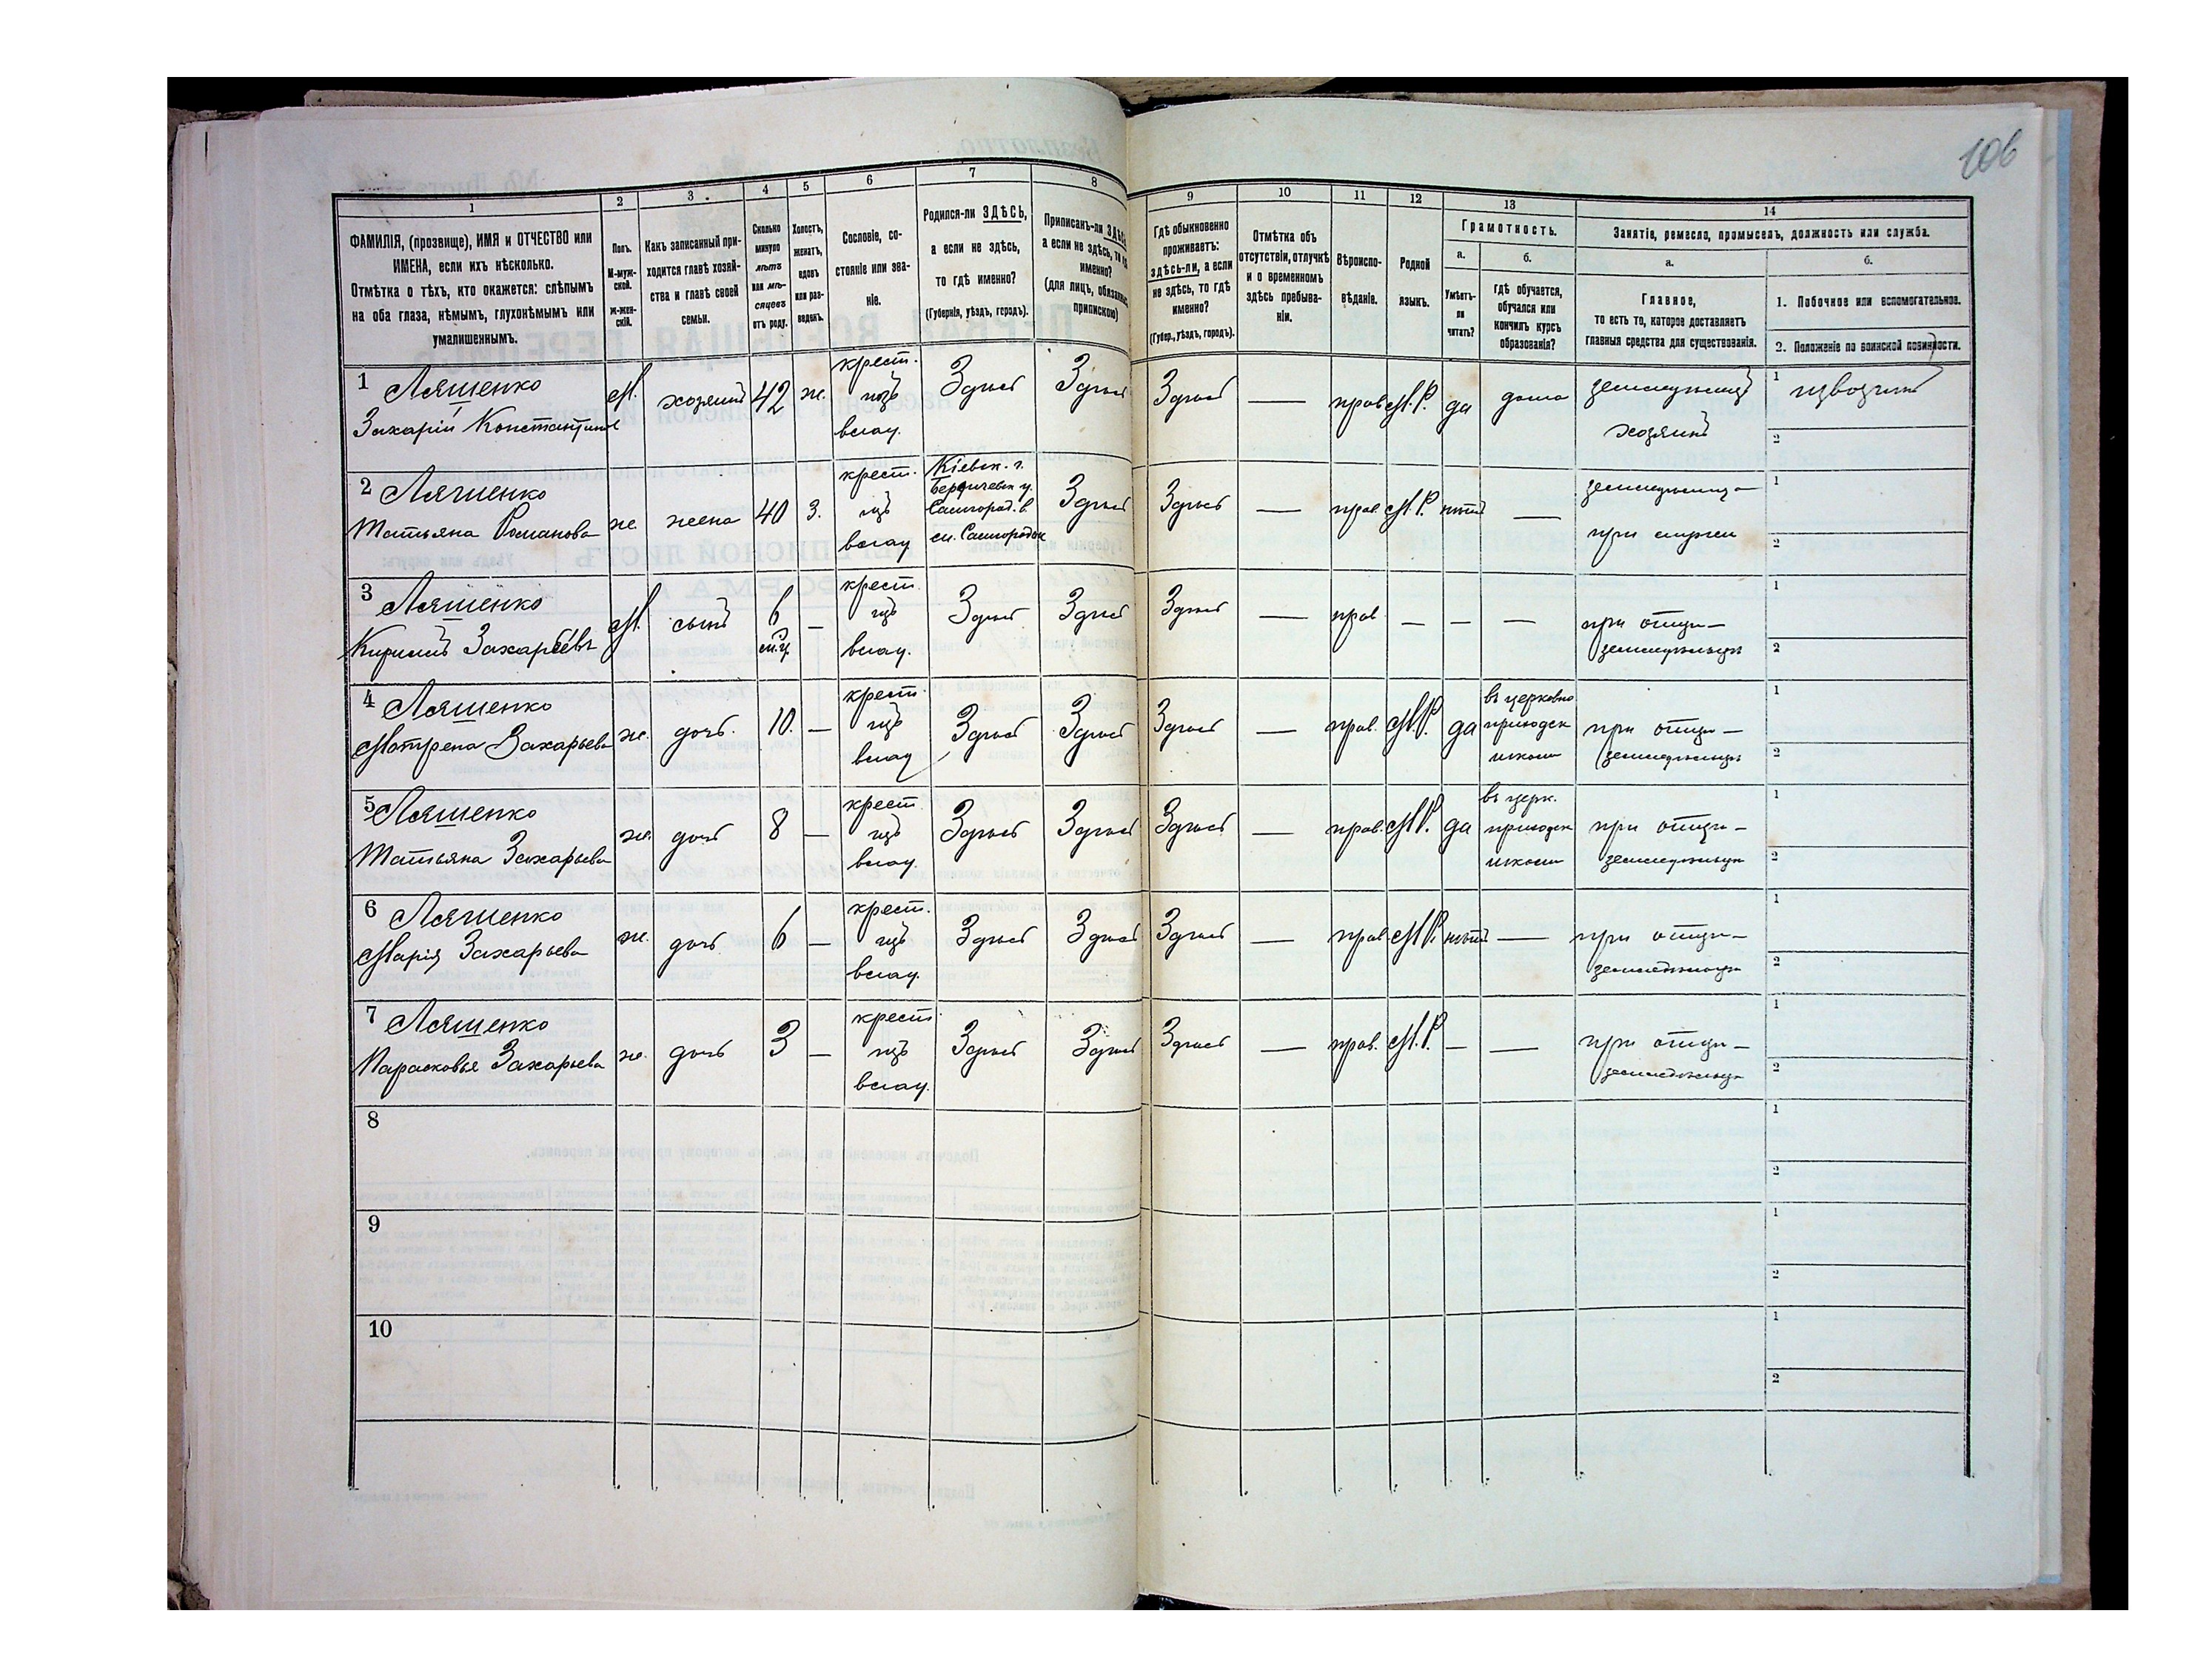 106
1 2 3 4 5 6 7 8 9 10 11 12 13 14
ФАМИЛІЯ, (прозвище), ИМЯ и ОТЧЕСТВО или
ИМЕНА, если ихъ нѣсколько.
Отмѣтка о тѣхъ, кто окажется: слѣпымъ
на оба глаза, нѣмымъ, глухонѣмымъ или
умалишеннымъ.
Полъ.
М-муж-
ской.
ж-жен-
скій.
Какъ записанный при-
ходится главѣ хозяй-
ства и главѣ своей
семьи.
Сколько
минуло
лѣтъ
или мѣ-
сяцевъ
отъ роду.
Холостъ,
женатъ,
вдовъ
или раз-
веденъ.
Сословіе, со-
стояніе или зва-
ніе.
Родился-ли ЗДѢСЬ,
а если не здѣсь,
то гдѣ именно?
(Губернія, уѣздъ, городъ).
Приписанъ-ли ЗДѢСЬ
а если не здѣсь, то гдѣ
именно?
(для лицъ, обязанныхъ
припискою)
Гдѣ обыкновенно
проживаетъ:
здѣсь-ли, а если
не здѣсь, то гдѣ
именно?
(Губер., уѣздъ, городъ).
Отмѣтка объ
отсутствіи, отлучкѣ
и о временномъ
здѣсь пребыва-
ніи.
Вѣроиспо-
вѣданіе.
Родной
языкъ.
Грамотность.
а.
Умѣетъ-
ли
читать?
б.
гдѣ обучается,
обучался или
кончилъ курсъ
образованія?
Занятіе, ремесло, промыселъ, должность или служба.
а.
Главное,
то есть то, которое доставляетъ
главныя средства для существованія.
б.
1. Побочное или вспомогательное.
2. Положеніе по воинской повинности.
1 Ляшенко
Захарій Константинов
М. хозяинъ 42 ж. крест. изъ влад. Здѣсь Здѣсь Здѣсь — прав. М.Р. да дома земледѣлецъ хозяинъ
1 извозчикъ
2
2 Ляшенко
Татьяна Романова
ж. жена 40 З. крест. изъ влад.
Кіевск. г.
Бердичевск у.
Самгород. в
м. Самгородок
Здѣсь Здѣсь — прав. М.Р. нѣтъ — при мужи
1
2
3 Ляшенко
Кирилъ Захарьевъ
М. сынъ 6 м.ц. — крест. изъ влад. Здѣсь Здѣсь Здѣсь — прав — — — при отцѣ — земледѣльцѣ
1
2
4 Ляшенко
Матрена Захарьева
ж. дочь. 10. — крест. изъ влад Здѣсь Здѣсь Здѣсь — прав. М.Р. да въ церковно приходск школѣ при отцѣ — земледѣльцѣ
1
2
5 Ляшенко
Татьяна Захарьева
ж. дочь 8 — крест. изъ влад. Здѣсь Здѣсь Здѣсь — прав. М.Р. да въ церк. приходск школѣ при отцѣ — земледѣльцѣ
1
2
6 Ляшенко
Марія Захарьева
ж. дочь 6 — крест. изъ влад. Здѣсь Здѣсь Здѣсь — прав. М.Р. нѣтъ — при отцѣ — земледѣльцѣ
1
2
7 Ляшенко
Парасковья Захарьева
ж. дочь 3 — крест изъ влад. Здѣсь Здѣсь Здѣсь — прав. М.Р. — — при отцѣ — земледѣльцѣ
1
2
8
1
2
9
1
2
10
1
2